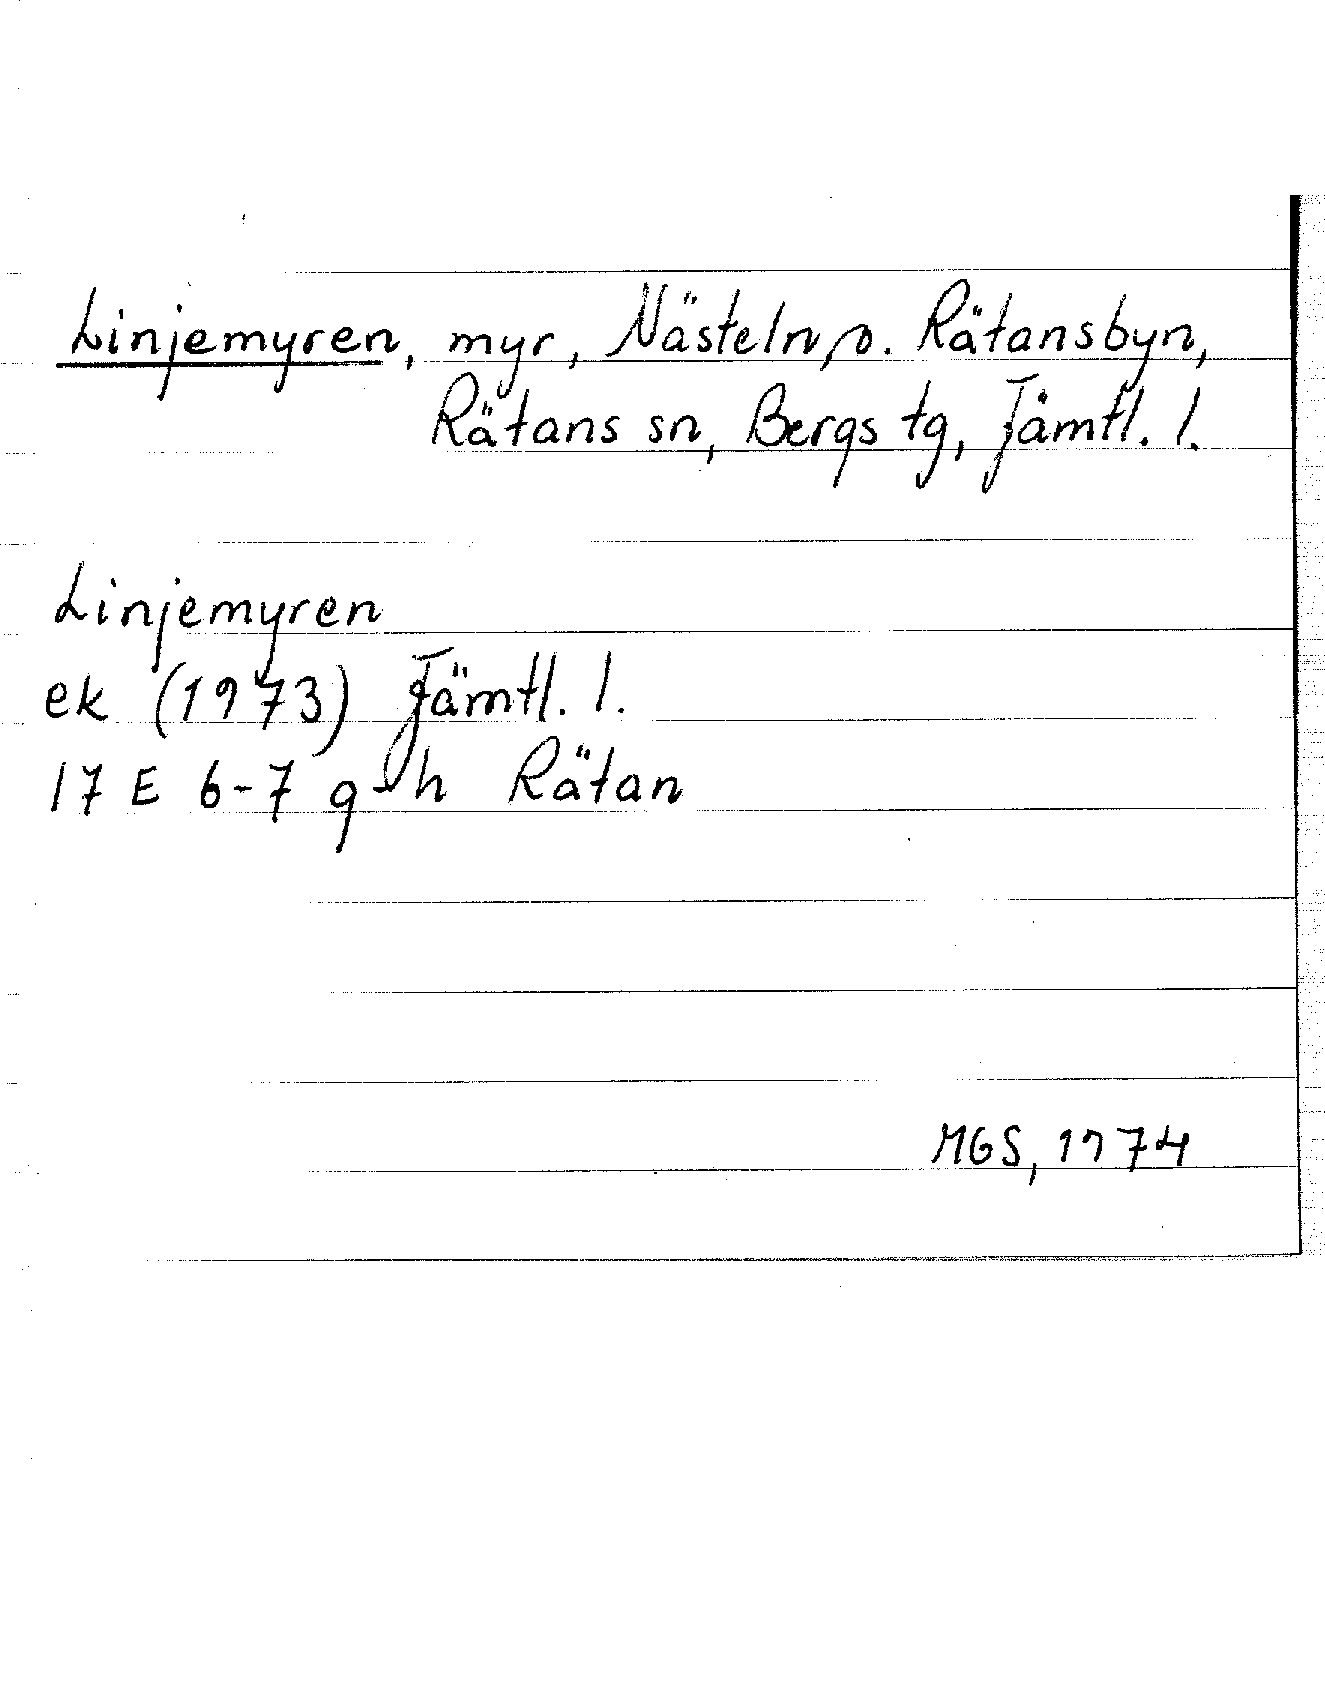 Linjemyren, myr, Nästeln, o. Rätansbyn,
Rätans sn, Bergs tg, Jämtl. l.
Linjemyren
ek (1973) Jämtl. l.
17 E 6-7 g-h Rätan
MGS, 1974